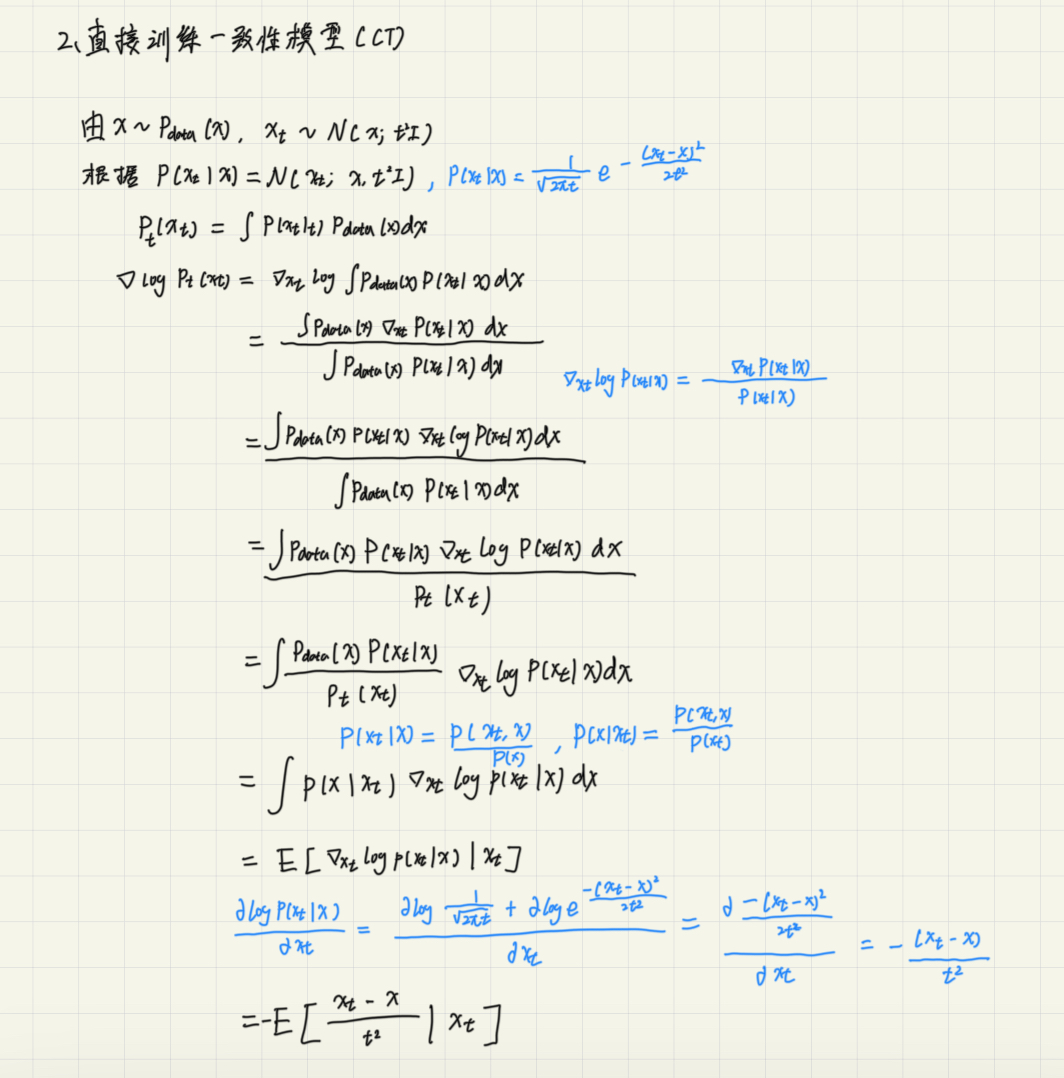 2、直接训练一致性模型（CT）
由 x ~ Pdata(x), xt ~ N(x; t²I)
根据 P(xt|x) = N(xt; x, t²I), P(xt|x) = 1/√(2πt) e^(-(xt-x)²/2t²)
Pt(xt) = ∫ P(xt|t) Pdata(x)dx
∇ log Pt(xt) = ∇xt log ∫Pdata(x) P(xt|x) dx
= ∫Pdata(x) ∇xt P(xt|x) dx / ∫Pdata(x) P(xt|x) dx
∇xt log P(xt|x) = ∇xt P(xt|x) / P(xt|x)
= ∫Pdata(x) P(xt|x) ∇xt log P(xt|x)dx / ∫Pdata(x) P(xt|x)dx
= ∫Pdata(x) P(xt|x) ∇xt log P(xt|x) dx / Pt(xt)
= ∫ Pdata(x) P(xt|x) / Pt(xt) ∇xt log P(xt|x)dx
P(xt|x) = P(xt, x) / P(x), P(x|xt) = P(xt, x) / P(xt)
= ∫ p(x|xt) ∇xt log p(xt|x) dx
= E[∇xt log p(xt|x) | xt]
∂log P(xt|x) / ∂xt = (∂log 1/√(2πt) + ∂log e^(-(xt-x)²/2t²)) / ∂xt = ∂ (-(xt-x)²/2t²) / ∂xt = - (xt-x) / t²
= -E[(xt - x) / t² | xt]